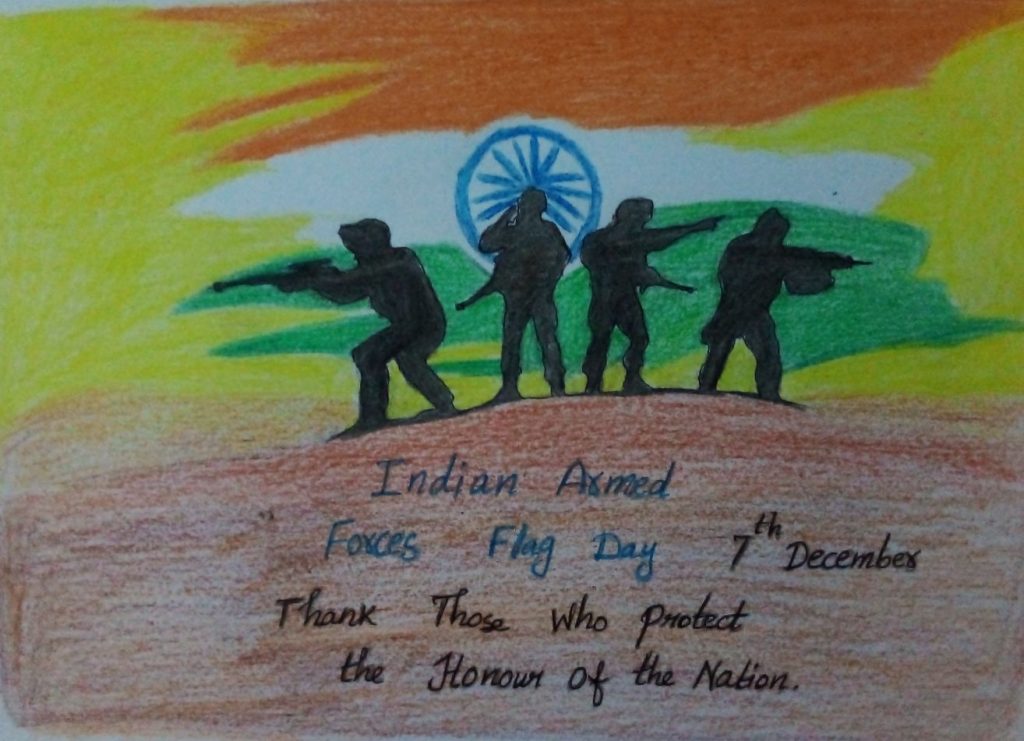 Indian Armed
Forces Flag Day 7th December
Thank Those who protect
the Honour of the Nation.